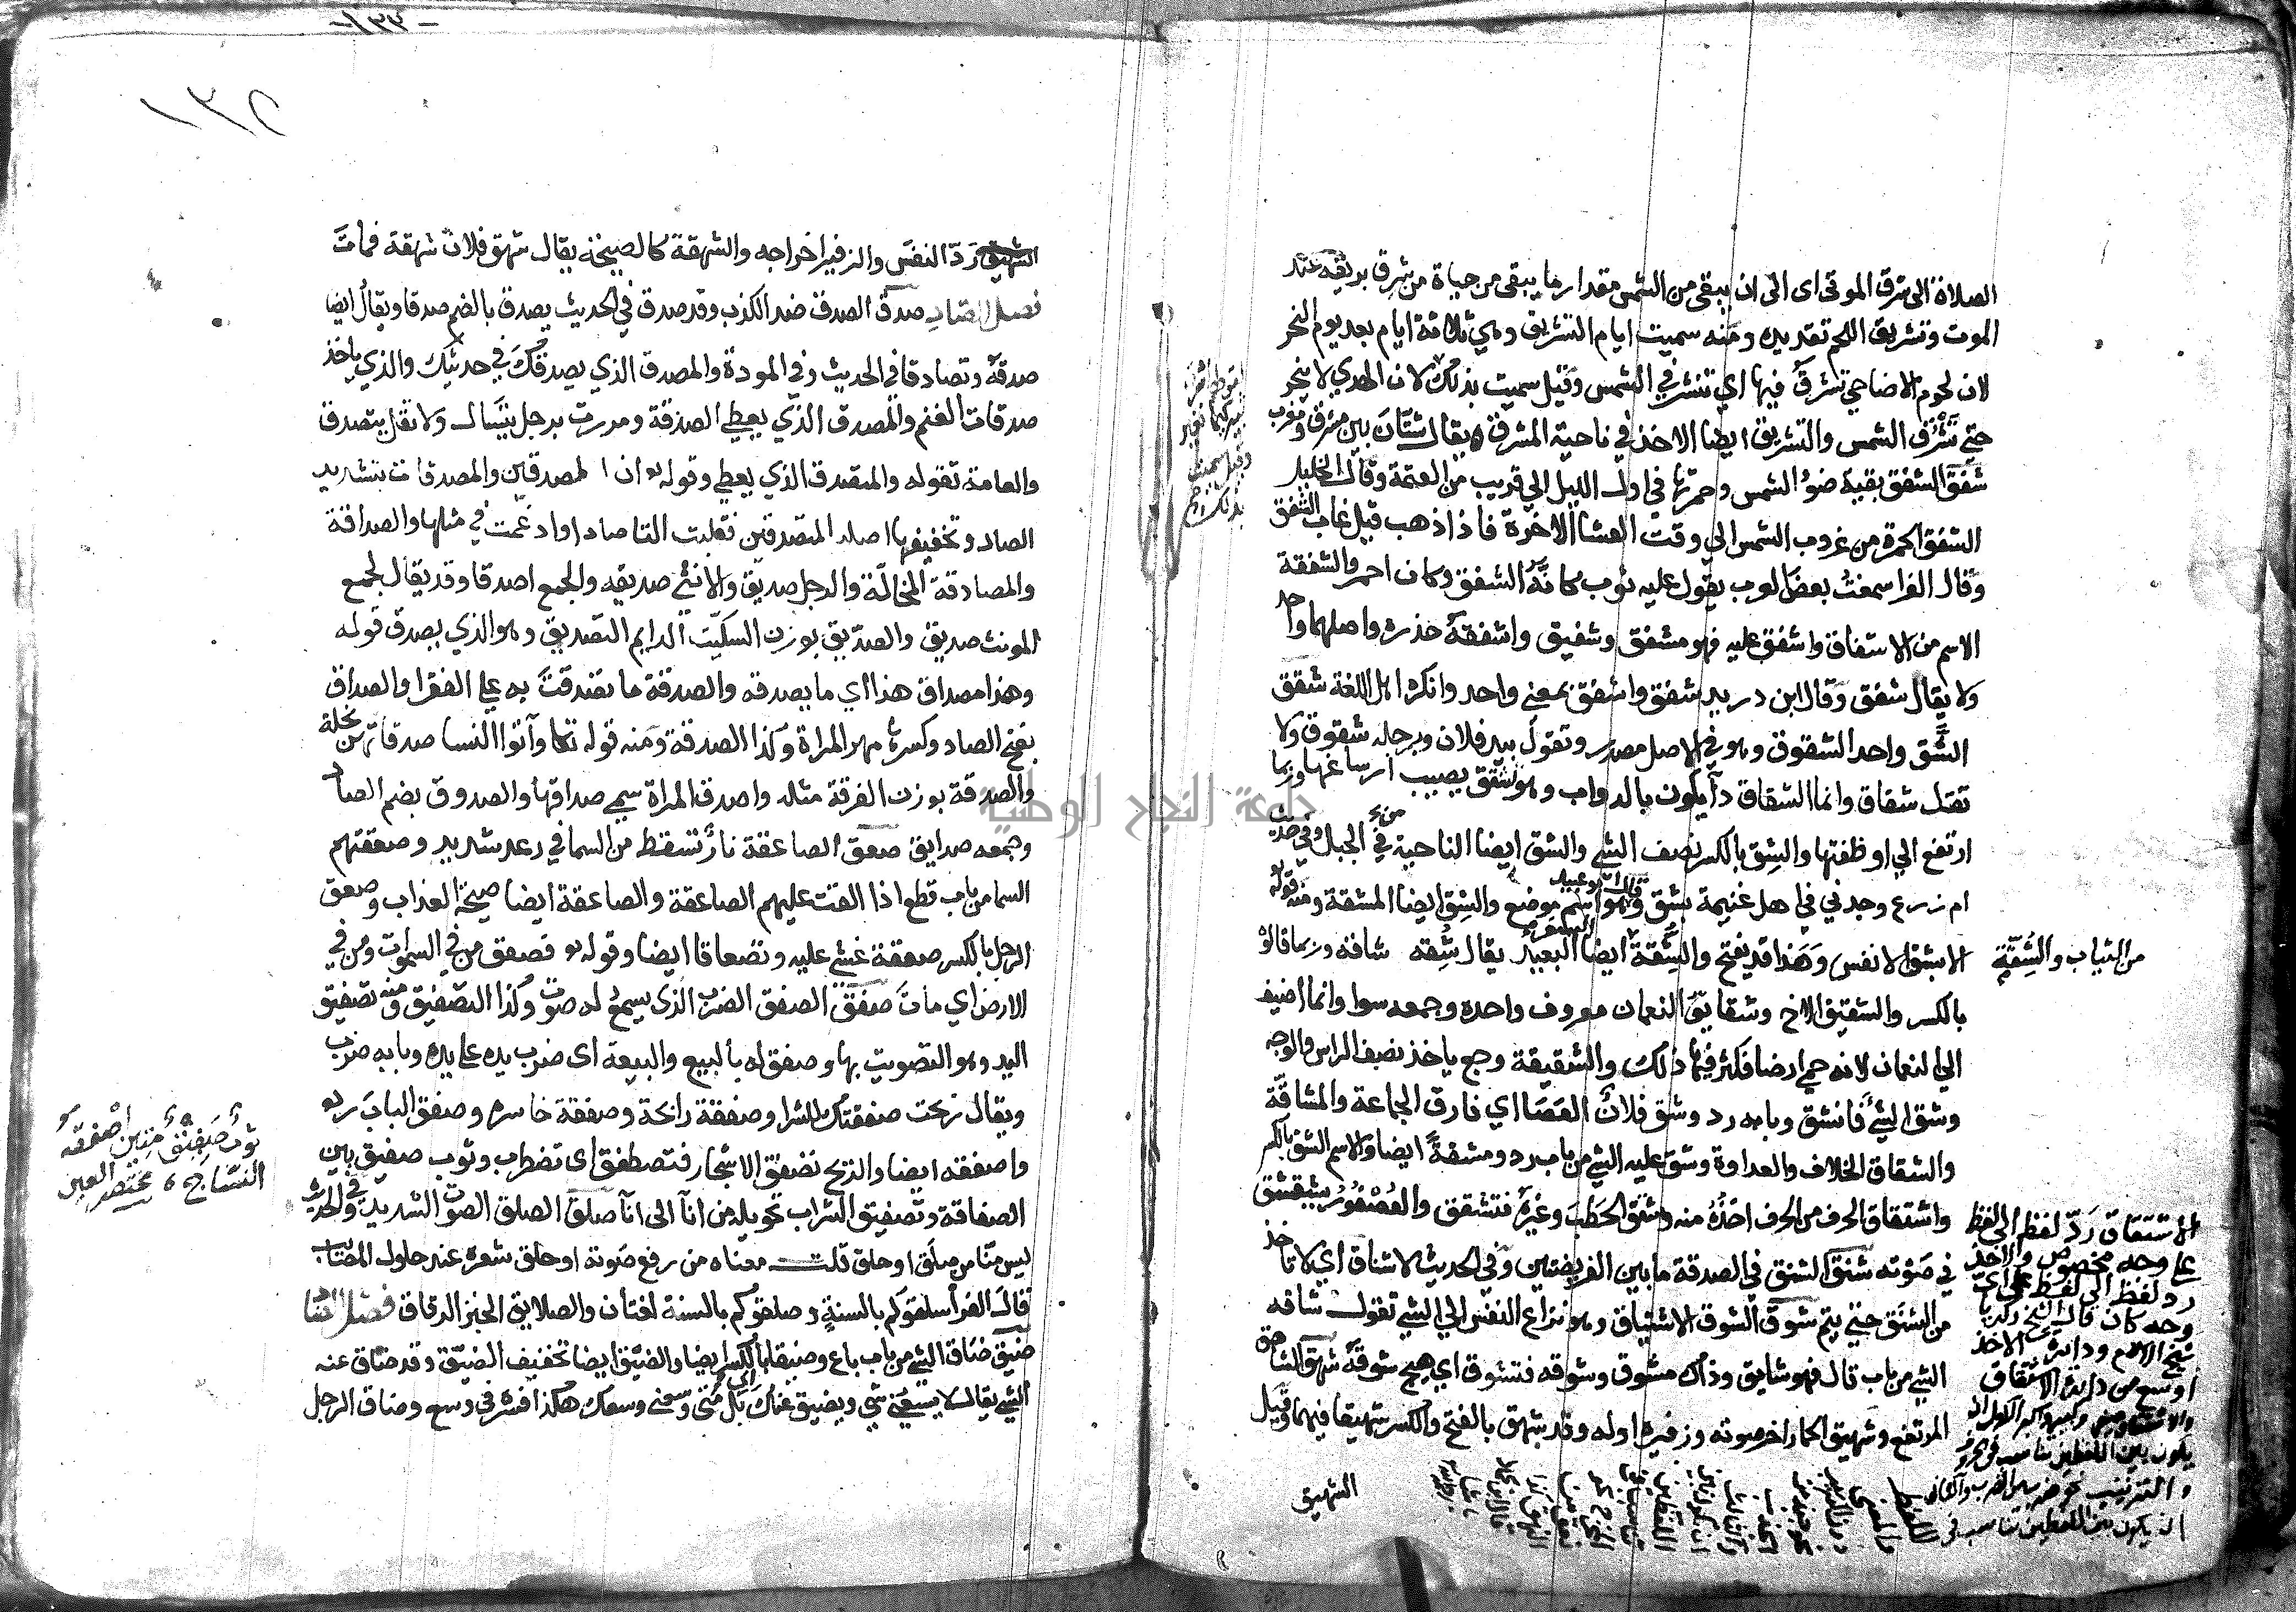 الصلاة الى شرق الموتى اى الى ان يبقى من الشمس مقدار ما يبقى من حياة من شرق بريقه عند
الموت وتشريق اللحم تقديده ومنه سميت ايام التشريق وهي ثلاثة ايام بعد يوم النحر
لان لحوم الاضاحي تشرق فيها اي تشرر في الشمس وقيل سميت بذلك لان الهدي لا ينحر
حتي تشرق الشمس والتشريق ايضا الاخذ في ناحية المشرق يقال شتان بين مشرق ومغرب
شفق الشفق بقية ضوء الشمس وحمرتها في اول الليل الي قريب من العتمة وقال الخليل
الشفق الحمرة من غروب الشمس الي وقت العشا الاخرة فاذا ذهب قيل غاب الشفق
وقال الفرا سمعت بعض العرب يقول عليه ثوب كانه الشفق وكان احمر والشفقة
الاسم من الاشفاق واشفق عليه فهو مشفق وشفيق واشفق منه حذره واصلهما واحد
ولا يقال شفق وقال ابن دريد شفق واشفق بمعني واحد وانكره اهل اللغة شقق
الشق واحد الشقوق وهو في الاصل مصدر وتقول بيد فلان وبرجله شقوق ولا
تقل شقاق وانما الشقاق داء يكون بالدواب وهو تشقق يصيب ارساغها وربما
ارتفع الي اوظفتها والشق بالكسر نصف الشي والشق ايضا الناحية من الجبل وفي حديث
ام زرع وجدني في اهل غنيمة بشق قال ابو عبيد وهو اسم موضع والشق ايضا المشقة ومنه قوله
الا بشق الانفس وهذا قد يفتح والشقة ايضا السفر البعيد يقال شقة شاقة وربما قالوه
من الثياب والشقة
بالكسر والشقيق الاخ وشقايق النعمان معروف واحده وجمعه سوا وانما اضيف
الي النعمان لانه حمي ارضا فكثر فيها ذلك والشقيقة وجع ياخذ نصف الراس والوجه
وشق الشيء فانشق وبابه رد وشق فلان العصا اي فارق الجماعة والمشاقة
والشقاق الخلاف والعداوة وشق عليه الشي من باب رد ومشقة ايضا والاسم الشق بالكسر
واشتقاق الحرف من الحرف اخذه منه وشقق الحطب وغيره فتشقق والعصفور يشقشق
في صوته شنق الشنق في الصدقة ما بين الفريضتين وفي الحديث لا شناق اي لا تاخذ
من الشنق حتي يتم شوق الشوق الاشتياق وهو نزاع النفس الي الشي تقول شاقه
الشي من باب قال فهو شايق وذاك مشوق وشوقه فتشوق اي هيج شوقه شهق الشاهق
المرتفع وشهيق الحمار اخر صوته وزفيره اوله وقد شهق بالفتح والكسر شهيقا فيهما وقيل
الشهيق
الاشتقاق رد لفظ الى لفظ
على وجه مخصوص والاخذ
رد لفظ الى لفظ على اي
وجه كان قال الشيخ زكريا
شيخ الاسلام ودائرة الاخذ
اوسع من دائرة الاشتقاق
-١٣٣-
١٣٢
الشهيق رد النفس والزفير اخراجه والشهقة كالصيحة يقال شهق فلان شهقة فمات
فصل الصاد صدق الصدق ضد الكذب وقد صدق في الحديث يصدق بالضم صدقا ويقال ايضا
صدقه وتصادقا في الحديث وفي المودة والمصدق الذي يصدقك في حديثك والذي ياخذ
صدقات الغنم والمتصدق الذي يعطي الصدقة ومررت برجل يسال ولا تقل يتصدق
والعامة تقوله والمتصدق الذي يعطي وقوله تعالى ان المصدقين والمصدقات بتشديد
الصاد وتخفيفها اصله المتصدقين فقلبت التا صادا وادغمت في مثلها والصداقة
والمصادقة المخالة والرجل صديق والانثى صديقه والجمع اصدقا وقد يقال لجمع
المونث صديق والصديق بوزن السكيت الدايم التصديق وهو الذي يصدق قوله
وهذا مصداق هذا اي ما يصدقه والصدقة ما تصدقت به علي الفقرا والصداق
بفتح الصاد وكسرها مهر المراة وكذا الصدقة ومنه قوله تعا وآتوا النسا صدقاتهن نحلة
والصدقة بوزن الغرفة مثله واصدق المراة سمي صداقها والصدوق بضم الصاد
وجمعه صدايق صعق الصاعقة نار تسقط من السما في رعد شديد وصعقتهم
السما من باب قطع اذا القت عليهم الصاعقة والصاعقة ايضا صيحة العذاب وصعق
الرجل بالكسر صعقة غشي عليه وتصعاقا ايضا وقوله تع فصعق من في السموات ومن في
الارض اي مات صفق الصفق الضرب الذي يسمع له صوت وكذا التصفيق ومنه تصفيق
اليد وهو التصويت بها وصفق له بالبيع والبيعة اى ضرب يده على يده وبابه ضرب
ويقال ربحت صفقتك للشرا وصفقة رابحة وصفقة خاسره وصفق الباب رده
واصفقه ايضا والريح تصفق الاشجار فتصطفق اى تضطرب وثوب صفيق بين
الصفاقة وتصفيق الشراب تحويله من انآ الى انآ صلق الصلق الصوت الشديد وفي الحديث
ليس منا من صلق او حلق قلت معناه من رفع صوته او حلق شعره عند حلول المصايب
قال الفرا سلقوكم بالسنة وصلقوكم بالسنة لغتان والصلايق الخبز الرقاق فصل الضاد
ضيق ضاق الشي من باب باع وضيقا بالكسر ايضا والضيق ايضا تخفيف الضيق وقد ضاق عنه
الشي يقال لا يسعني شي ويضيق عنك بل متى وسعني وسعك هكذا فسره في وسع وضاق الرجل
ثوب صفيق متين اصفقه
النساج مختصر العين
جامعة النجاح الوطنية